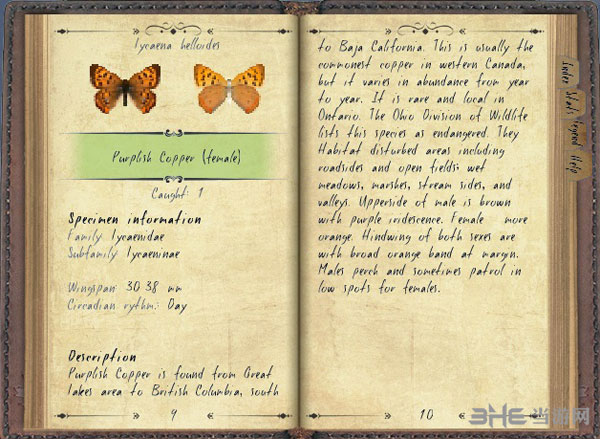 Lycaena helloides
Purplish Copper (female)
Caught: 1
Specimen information
Family Lycaenidae
Subfamily Lycaeninae
Wingspan 30 38 mm
Circadian rythm: Day
Description
Purplish Copper is found from Great
lakes area to British Columbia, south
9
to Baja California. This is usually the
commonest copper in western Canada,
but it varies in abundance from year
to year. It is rare and local in
Ontario. The Ohio Division of Wildlife
lists this species as endangered. They
Habitat disturbed areas including
roadsides and open fields; wet
meadows, marshes, stream sides, and
valleys. Upperside of male is brown
with purple iridescence. Female more
orange. Hindwing of both sexes are
with broad orange band at margin.
Males perch and sometimes patrol in
low spots for females.
10
Index Stats Legend Help
3HE 当游网